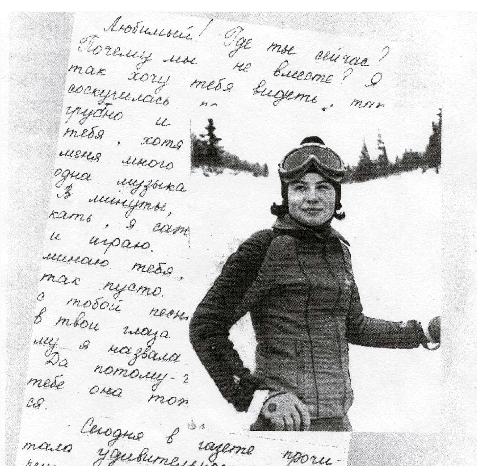 Любимый! Где ты сейчас?
Почему мы не вместе? Я
так хочу тебя видеть, так
соскучилась
грубно и
тебя, хотя
меня много
одна музыка
В минуты,
кать, я
и играю.
минаю тебя,
так пусто.
с тобой песни
в твои глаза
му я назвала
Да потому-
тебе она
ся.
Сегодня в газете прочи-
тала